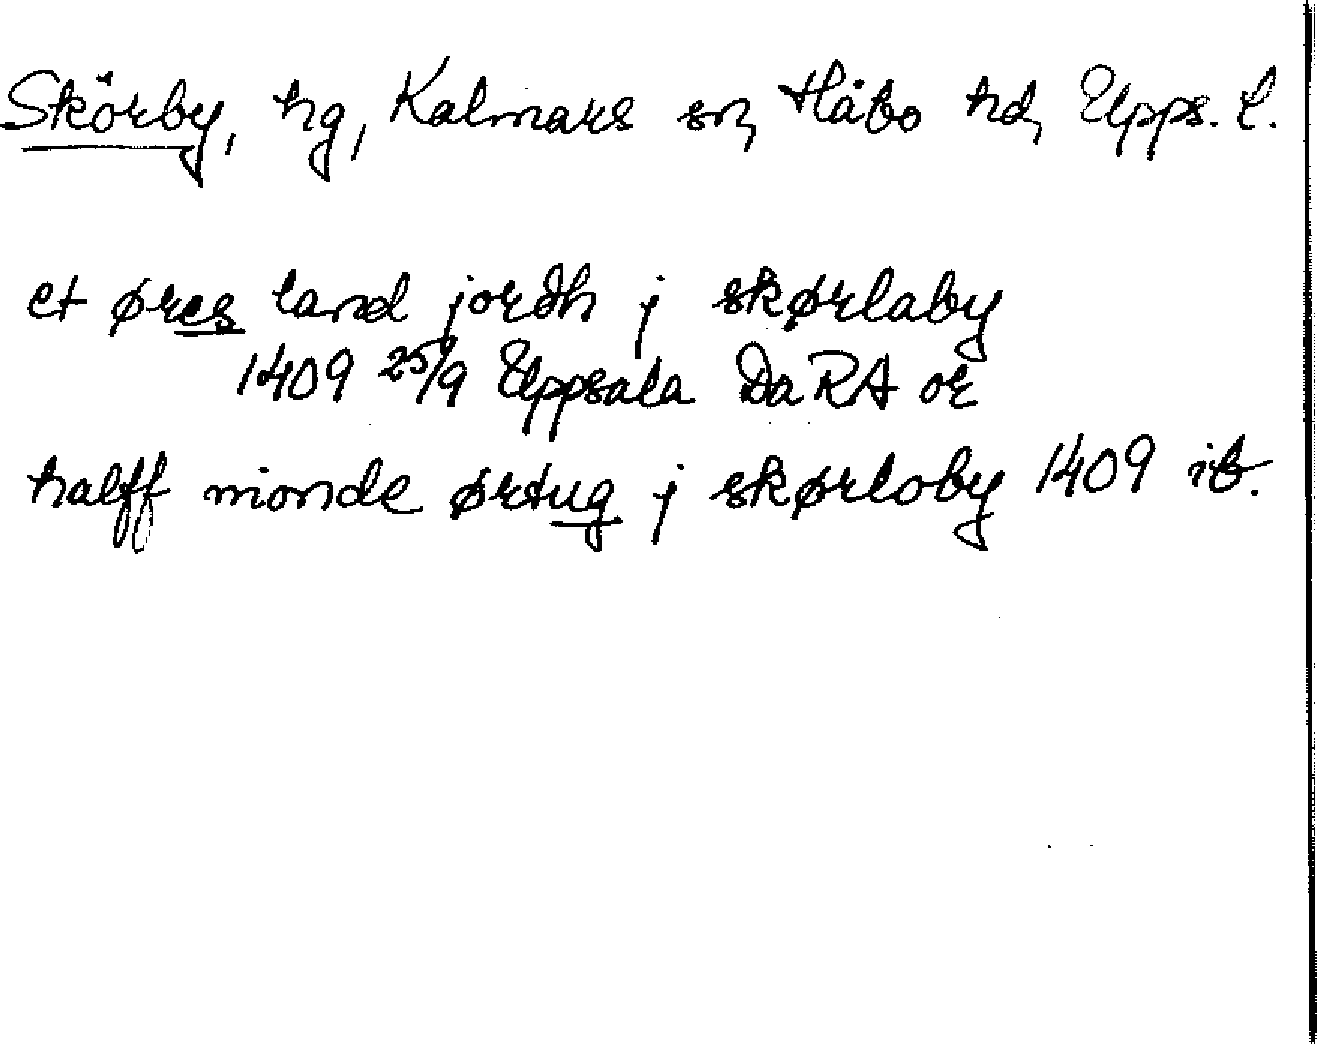 Skörby, hg, Kalmars sn, Håbo hd, Upps. l.
et øres land jordh j skørlaby
1409 25/9 Uppsala DaRA or
halff mionde ørtug j skørloby 1409 ib.